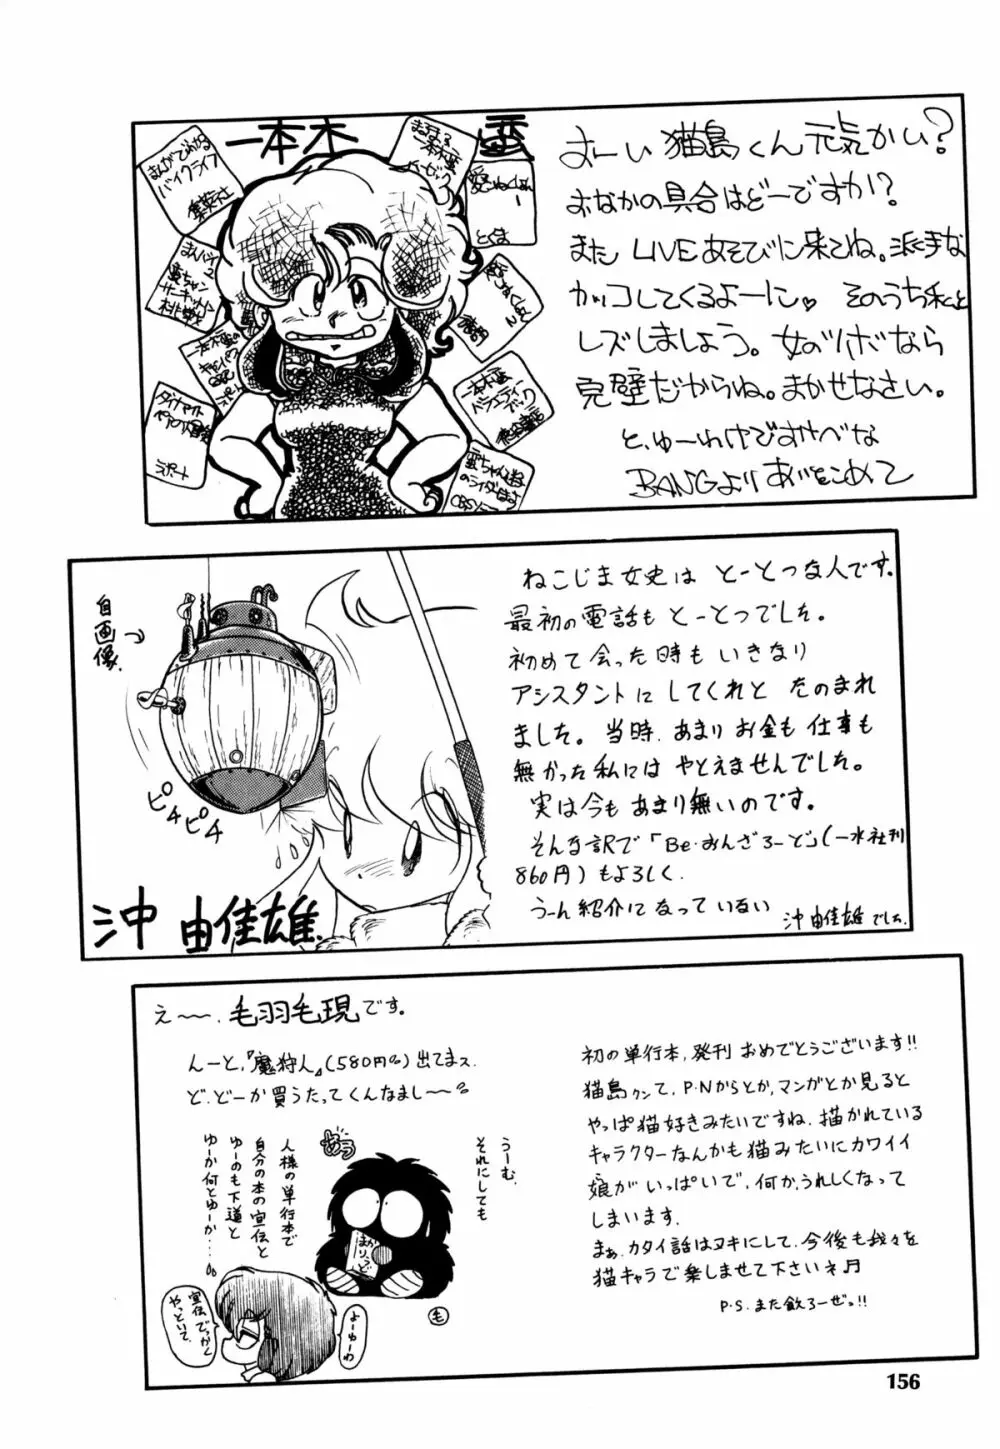 一本木 蛮
おーい 猫島くん 元気かい?
おなかの具合はどーですか!?
また LIVEあそびに来てね。派手な
カッコしてくるよーに♡ そのうち私と
レズしましょう。女のツボなら
完璧だからね。まかせなさい。
と、ゆーわけですけべな
BANGより あいをこめて
まんがでわかる
バイクライフ
集英社
とくま
一本木蛮
バラエティー
ブック
自画像
ピチ
ピチ
沖 由佳雄.
ねこじま女史は とーとつな人です。
最初の電話も とーとつでした。
初めて会った時も いきなり
アシスタントに してくれと たのまれ
ました。当時、あまり お金も 仕事も
無かった私には やとえませんでした。
実は今も あまり無いのです。
そんな訳で「Be・おんざろーど」(一水社刊
860円)もよろしく.
うーん紹介になっていない
沖 由佳雄でした.
え〜〜. 毛羽毛現です。
んーと,『魔狩人』(580円)出てまス.
ど、どーか買うたってくんなまし〜〜?
うーむ.
それにしても
人様の単行本で
自分の本の宣伝と
ゆーのも下道と
ゆーか何とゆーか・・・。
まかりうど
毛
よーゆーわ
宣伝 でっかく
やっといて.
初の単行本,発刊 おめでとうございます!!
猫島クンて,P・Nからとか,マンガとか見ると
やっぱ猫好きみたいですね.描かれている
キャラクターなんかも猫みたいにカワイイ
娘がいっぱいで,何か,うれしくなって
しまいます.
まぁ,カタイ話はヌキにして.今後も我々を
猫キャラで楽しませて下さいネ♬
P・S.また飲ろーぜっ!!
156